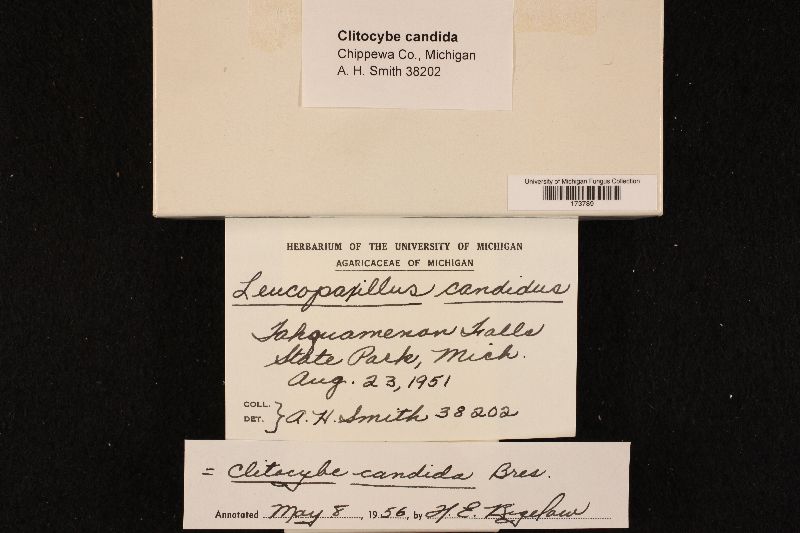 Clitocybe candida
Chippewa Co., Michigan
A. H. Smith 38202
University of Michigan Fungus Collection
173789
HERBARIUM OF THE UNIVERSITY OF MICHIGAN
AGARICACEAE OF MICHIGAN
Leucopaxillus candidus
Tahquamenon Falls
State Park, Mich.
Aug. 23, 1951
COLL.
DET. } A. H. Smith 38202
= Clitocybe candida Bres.
Annotated May 8, 1956, by H. E. Bigelow